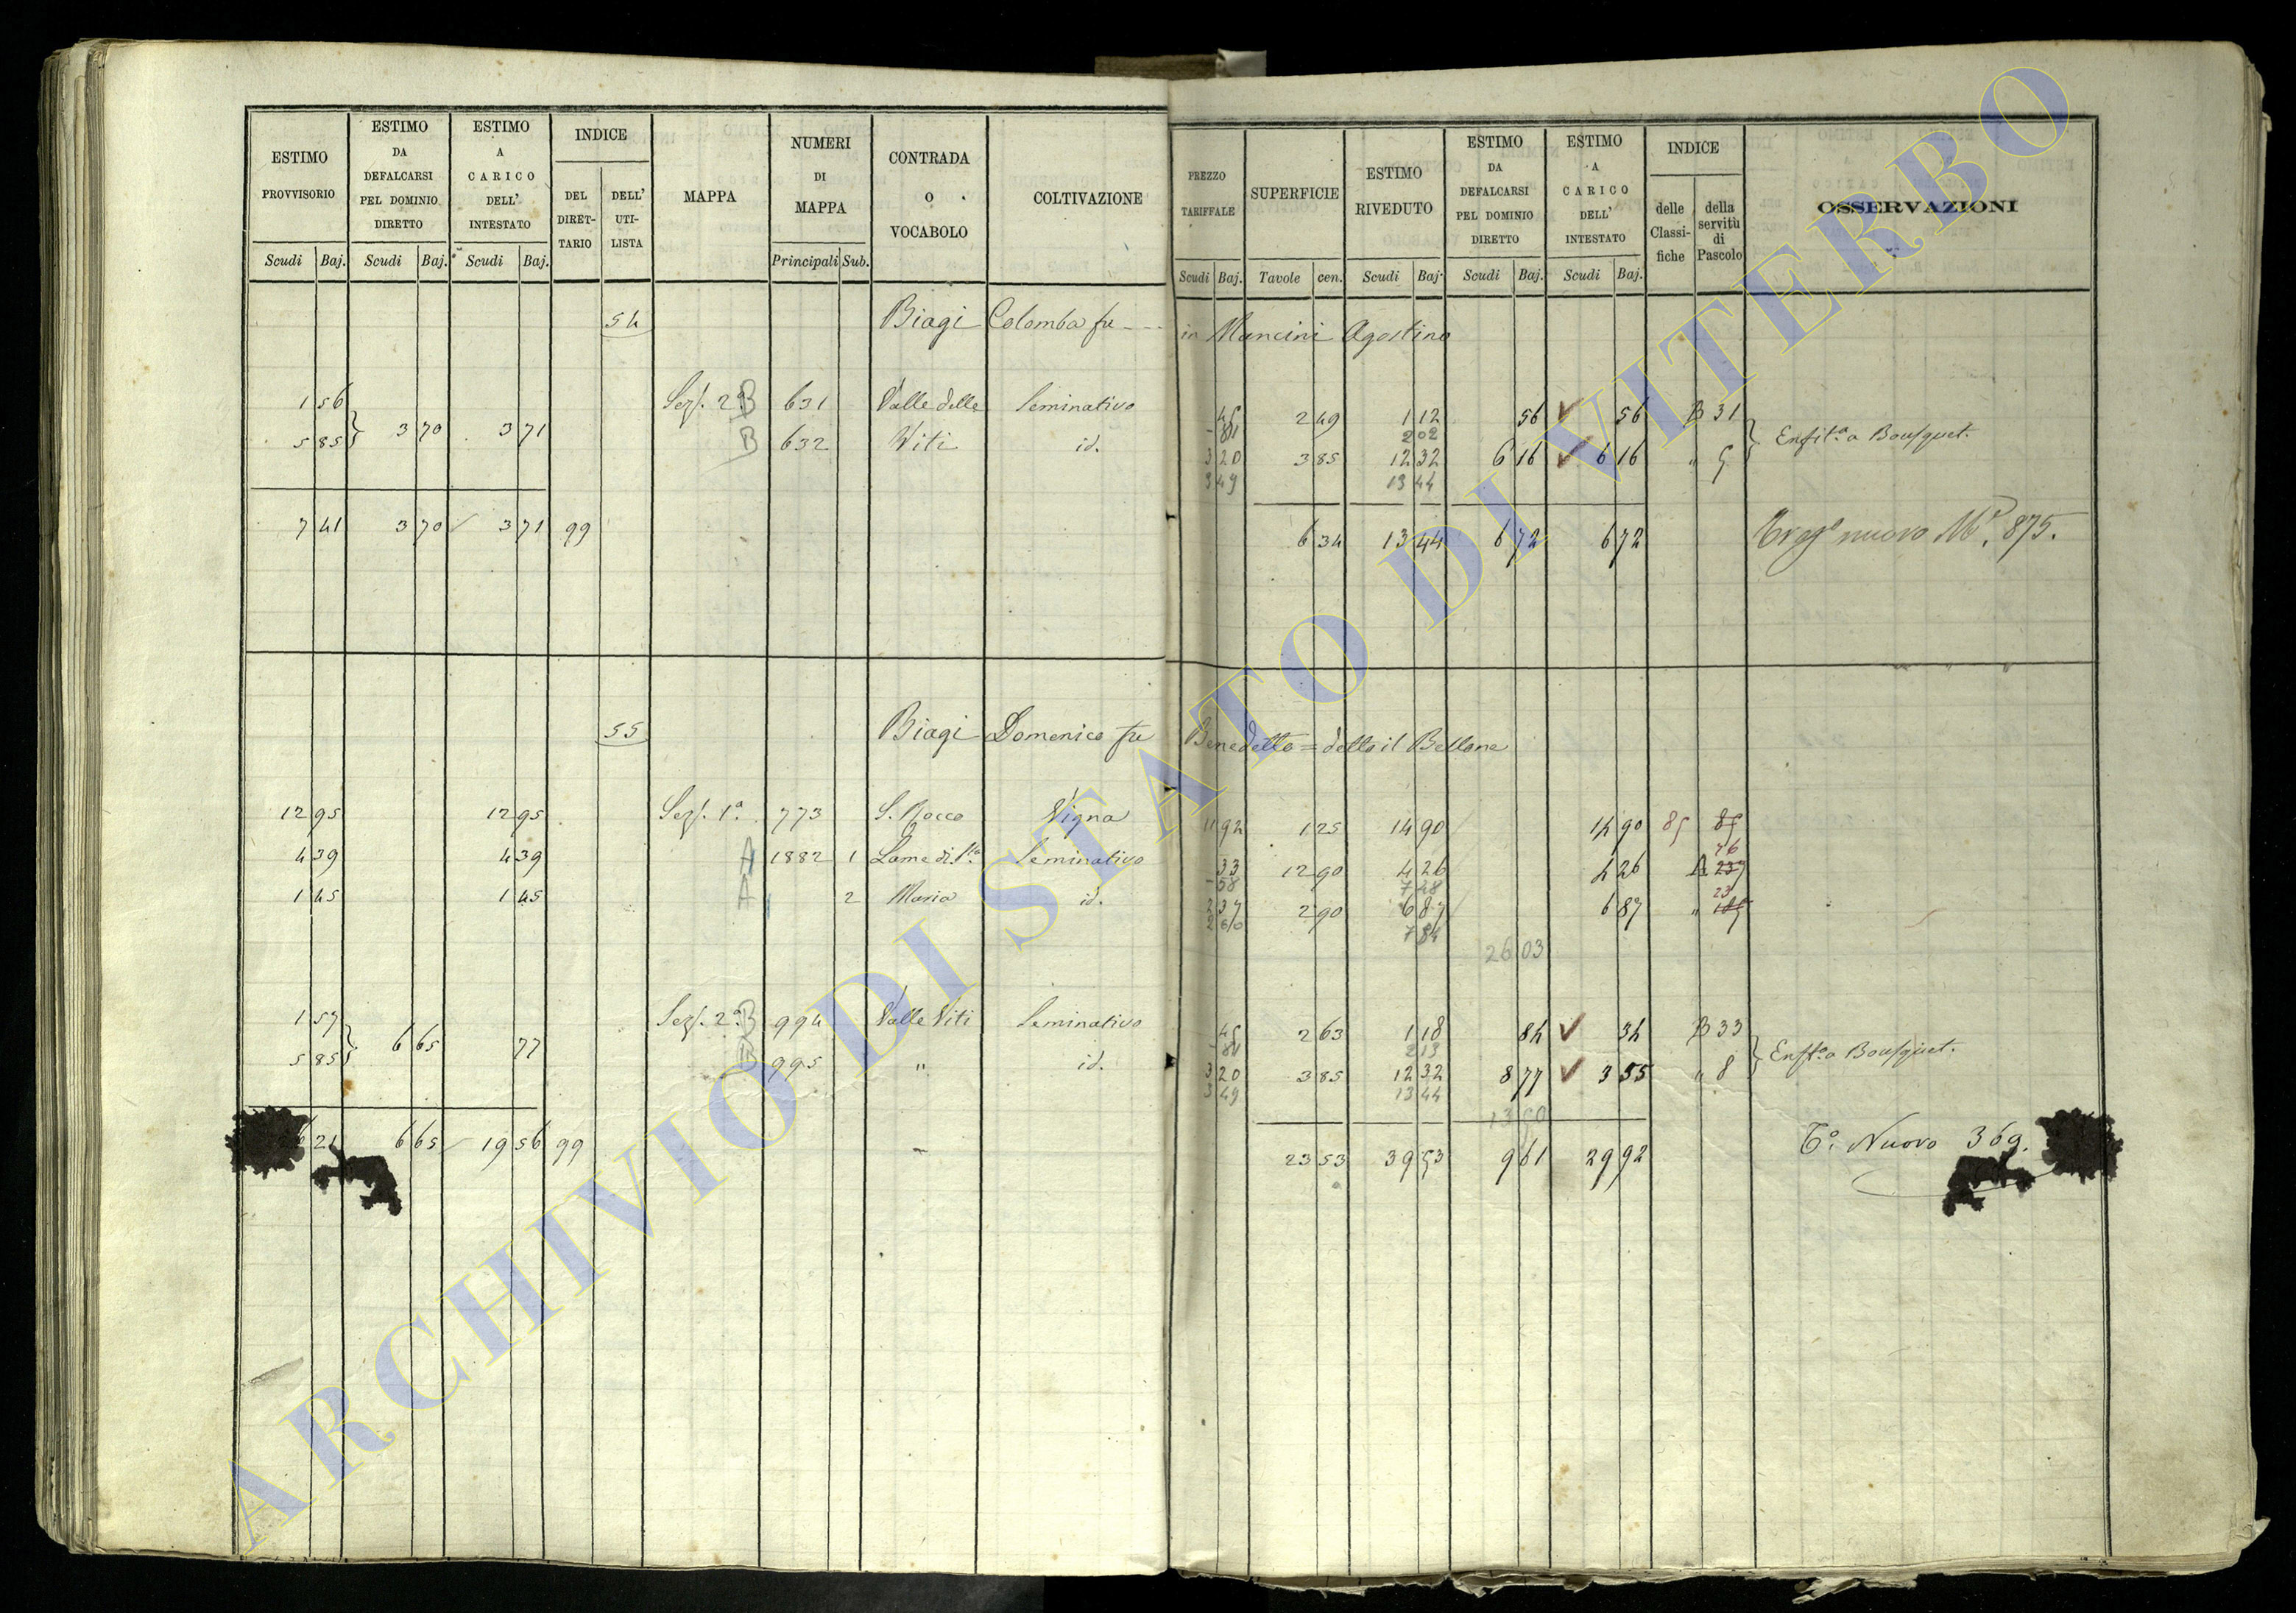 ESTIMO PROVVISORIO
Scudi Baj.
ESTIMO DA DEFALCARSI PEL DOMINIO DIRETTO
Scudi Baj.
ESTIMO A CARICO DELL' INTESTATO
Scudi Baj.
INDICE
DEL DIRET-TARIO
DELL' UTI-LISTA
MAPPA
NUMERI DI MAPPA
Principali Sub.
CONTRADA O VOCABOLO
COLTIVAZIONE
PREZZO TARIFFALE
Scudi Baj.
SUPERFICIE
Tavole cen.
ESTIMO RIVEDUTO
Scudi Baj.
ESTIMO DA DEFALCARSI PEL DOMINIO DIRETTO
Scudi Baj.
ESTIMO A CARICO DELL' INTESTATO
Scudi Baj.
INDICE
delle Classi-fiche
della servitù di Pascolo
OSSERVAZIONI
54 Biagi Colomba fu --- in Mancini Agostino
1 56 Sez. 2ª B 631 Valle delle Seminativo 45 2 49 1 12 56 56 B 31
81 2 02
5 85 } 3 70 3 71 B 632 Viti id. 3 20 3 85 12 32 6 16 6 16 " 5 } Enfitª a Bousquet.
3 49 13 44
7 41 3 70 3 71 99 6 34 13 44 6 72 6 72 nuovo Nº. 875.
55 Biagi Domenico fu Benedetto = detto il Bellone
12 95 12 95 Sez. 1ª. 773 S. Rocco Vigna 11 92 1 25 14 90 14 90 85 85
4 39 4 39 A 1882 1 Lame di S.ta Seminativo 33 12 90 4 26 4 26 A 237 46
58 7 48
1 45 1 45 A 2 Maria id. 2 37 2 90 6 87 6 87 " 23
2 66 7 84
26 03
1 57 Sez. 2ª. B 994 Valle Viti Seminativo 45 2 63 1 18 84 34 B 33
81 2 13
5 85 } 6 65 77 995 " id. 3 20 3 85 12 32 8 77 3 55 " 8 } Enftª a Bousquet.
3 49 13 44
21 6 65 19 56 99 23 53 39 53 9 61 29 92 Tº. Nuovo 369.
ARCHIVIO DI STATO DI VITERBO